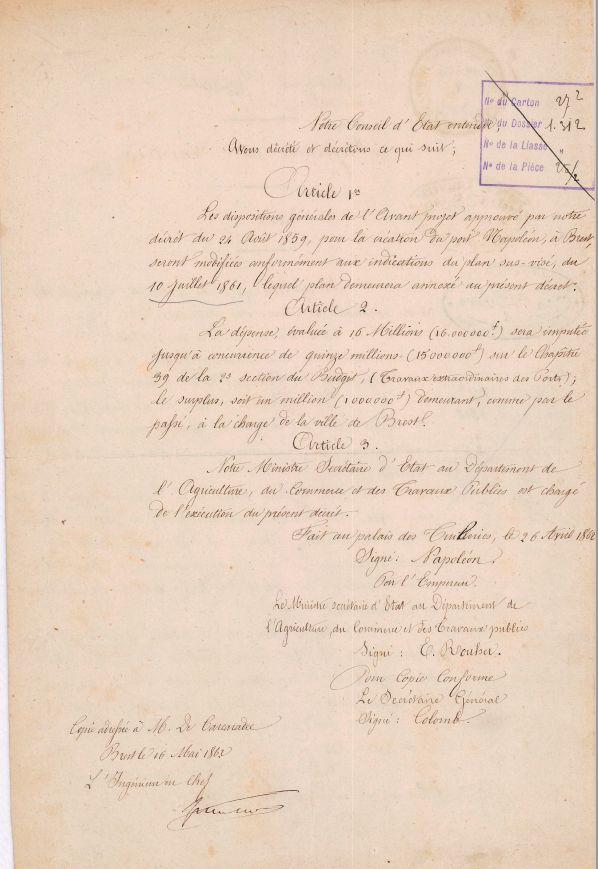 Notre Conseil d'Etat entendu;
Avons décrété et décrétons ce qui suit;
N° du Carton 27 2
N° du Dossier 1.312
N° de la Liasse "
N° de la Pièce 25/2
Article 1er
Les dispositions générales de l'Avant projet approuvé par notre
décrêt du 24 Août 1859, pour la création du port Napoléon, à Brest,
seront modifiées conformément aux indications du plan sus-visé, du
10 juillet 1861, lequel plan demeurera annexé au présent décret.
Article 2.
La dépense, évaluée à 16 Millions (16.000000f) sera imputée
jusqu'à concurrence de quinze millions (15000000f) sur le Chapitre
39 de la 2e section du Budget, (Travaux extraordinaires des Ports);
le surplus, soit un million (1000000f) demeurant, comme par le
passé, à la charge de la ville de Brest.
Article 3.
Notre Ministre Secrétaire d'Etat au Département de
l'Agriculture, du Commerce et des Travaux Publics est chargé
de l'exécution du présent décrêt.
Fait au palais des Tuileries, le 26 Avril 1862
Signé: Napoléon.
Par l'Empereur.
Le Ministre secrétaire d'Etat au Département de
l'Agriculture, du Commerce et des Travaux publics
Signé: E. Rouher.
Pour Copie Conforme
Le Secrétaire Général
Signé: Colomb.
Copie adressée à M. De
Brest le 16 Mai 1862
L'Ingénieur en Chef